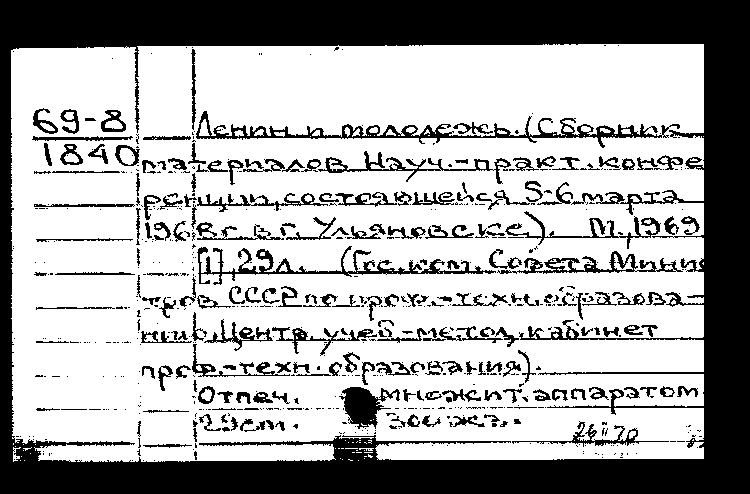 69-8
Ленин и молодежь. (Сборник
1840
материалов Науч.-практ. конфе
ренции, состоявшейся 5-6 марта
1968 г. в г. Ульяновске). М., 1969
[1], 29 л. (Гос. ком. Совета Минис
тров СССР по проф.-техн. образова-
нию. Центр. учеб.-метод. кабинет
проф.-техн. образования).
Отпеч. множит. аппаратом
29 cm.